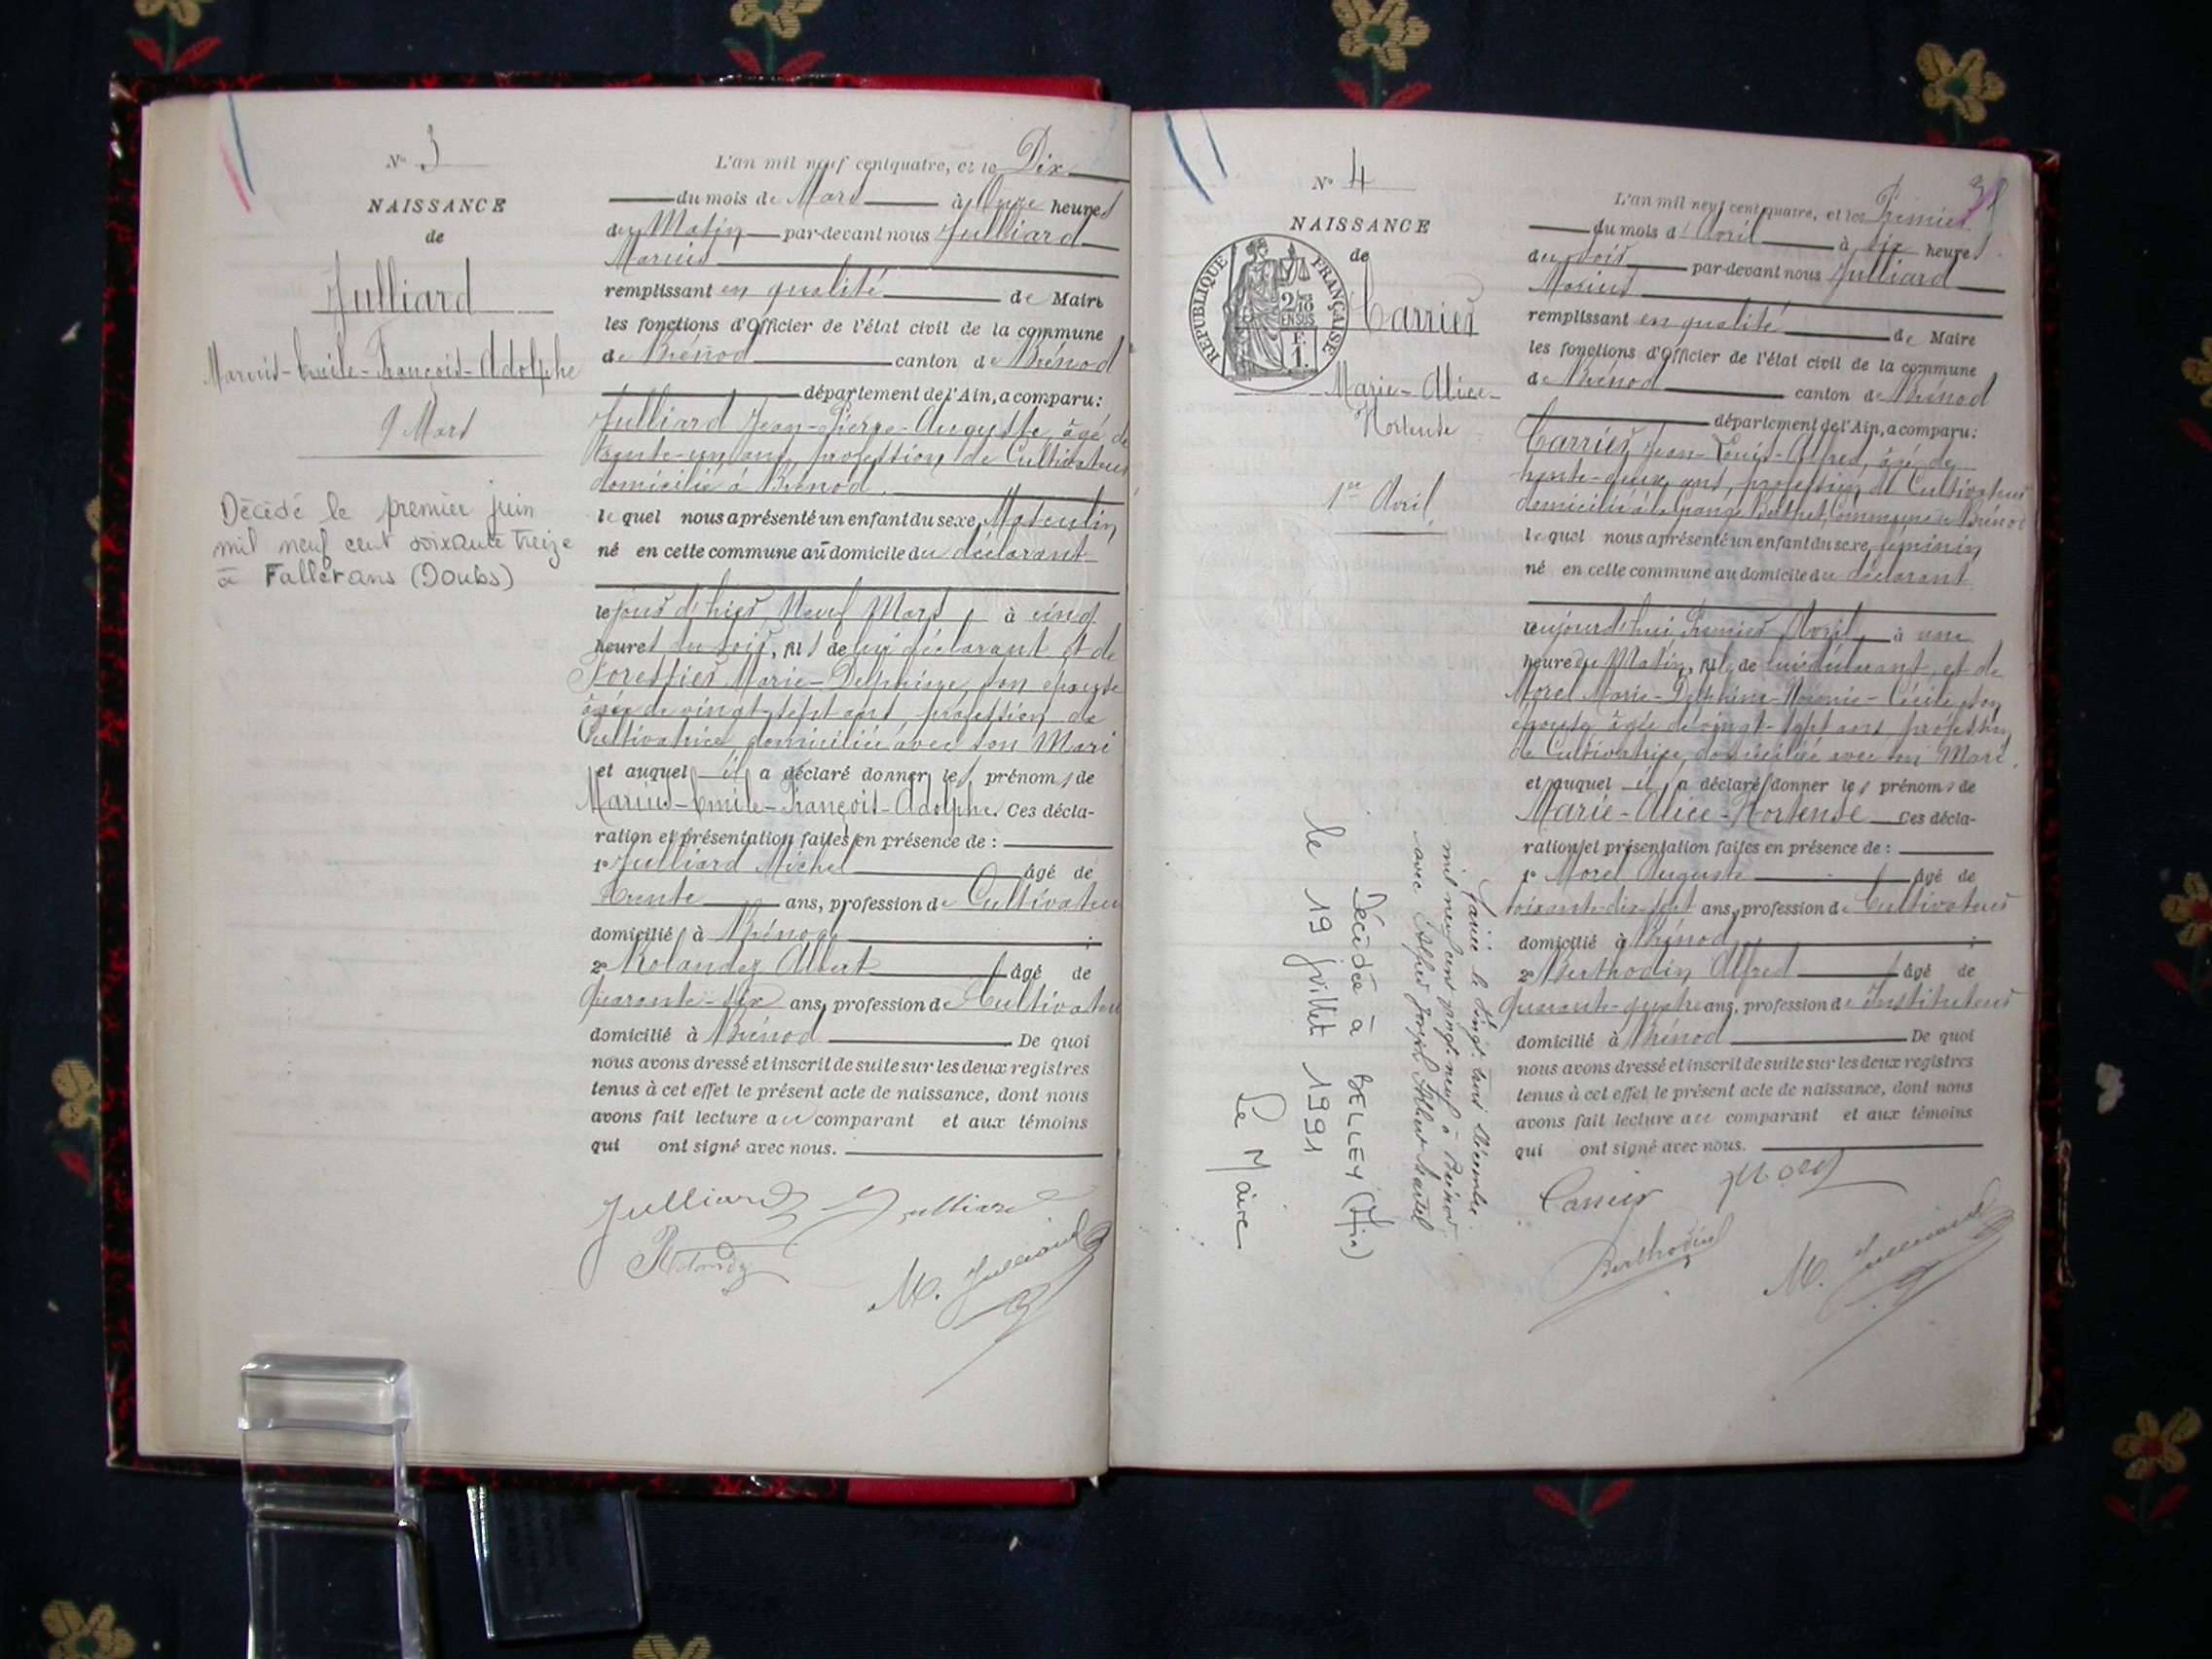 N° 3
NAISSANCE
de
Julliard
Marius-Emile-François-Adolphe
9 Mars
Décédé le premier juin
mil neuf cent soixante treize
à Fallerans (Doubs)
L'an mil neuf cent quatre, et le Dix
du mois de Mars à Onze heures
du Matin par-devant nous Julliard
Marius
remplissant en qualité de Maire
les fonctions d'Officier de l'état civil de la commune
de Brénod canton de Brénod
département de l'Ain, a comparu:
Julliard Jean-Pierre-Auguste, âgé de
trente-un ans, profession de Cultivateur
domicilié à Brénod.
le quel nous a présenté un enfant du sexe Masculin
né en cette commune au domicile du déclarant
le jour d'hier, Neuf Mars, à cinq
heures du soir, fils de lui déclarant et de
Forestier Marie-Delphine, son épouse
âgée de vingt-sept ans, profession de
Cultivatrice, domiciliée avec son Mari
et auquel il a déclaré donner les prénoms de
Marius-Emile-François-Adolphe. Ces décla-
ration et présentation faites en présence de :
1° Julliard Michel âgé de
trente ans, profession de Cultivateur
domicilié à Brénod ;
2° Rolandez Albert âgé de
quarante-six ans, profession de Cultivateur
domicilié à Brénod De quoi
nous avons dressé et inscrit de suite sur les deux registres
tenus à cet effet le présent acte de naissance, dont nous
avons fait lecture au comparant et aux témoins
qui ont signé avec nous.
Julliard Julliard
Rolandez
M. Julliard
N° 4
NAISSANCE
de
RÉPUBLIQUE FRANÇAISE
2/10
EN SUS
F.
1.
Carrier
Marie-Alice-
Hortense
1er Avril
Mariée le vingt-trois décembre
mil neuf cent vingt-neuf à Brénod
avec Alfred Joseph
Décédée à BELLEY (Ain)
le 19 juillet 1991
Le Maire
L'an mil neuf cent quatre, et le Premier
du mois d'Avril à six heures
du soir par-devant nous Julliard
Marius
remplissant en qualité de Maire
les fonctions d'Officier de l'état civil de la commune
de Brénod canton de Brénod
département de l'Ain, a comparu:
Carrier Jean-Louis-Alfred, âgé de
trente-deux ans, profession de Cultivateur
domicilié à la Grange Berthet, Commune de Brénod
le quel nous a présenté un enfant du sexe féminin
né en cette commune au domicile du déclarant
aujourd'hui, Premier Avril, à une
heure du Matin, fille de lui déclarant et de
Morel Marie-Delphine-Noémie-Cécile, son
épouse âgée de vingt-sept ans profession
de Cultivatrice, domiciliée avec son Mari,
et auquel il a déclaré donner les prénoms de
Marie-Alice-Hortense Ces décla-
ration et présentation faites en présence de :
1° Morel Auguste âgé de
soixante-dix-sept ans, profession de Cultivateur
domicilié à Brénod ;
2° Berthodin Alfred âgé de
quarante-quatre ans, profession de Instituteur
domicilié à Brénod De quoi
nous avons dressé et inscrit de suite sur les deux registres
tenus à cet effet le présent acte de naissance, dont nous
avons fait lecture au comparant et aux témoins
qui ont signé avec nous.
Carrier Morel
Berthodin
M. Julliard